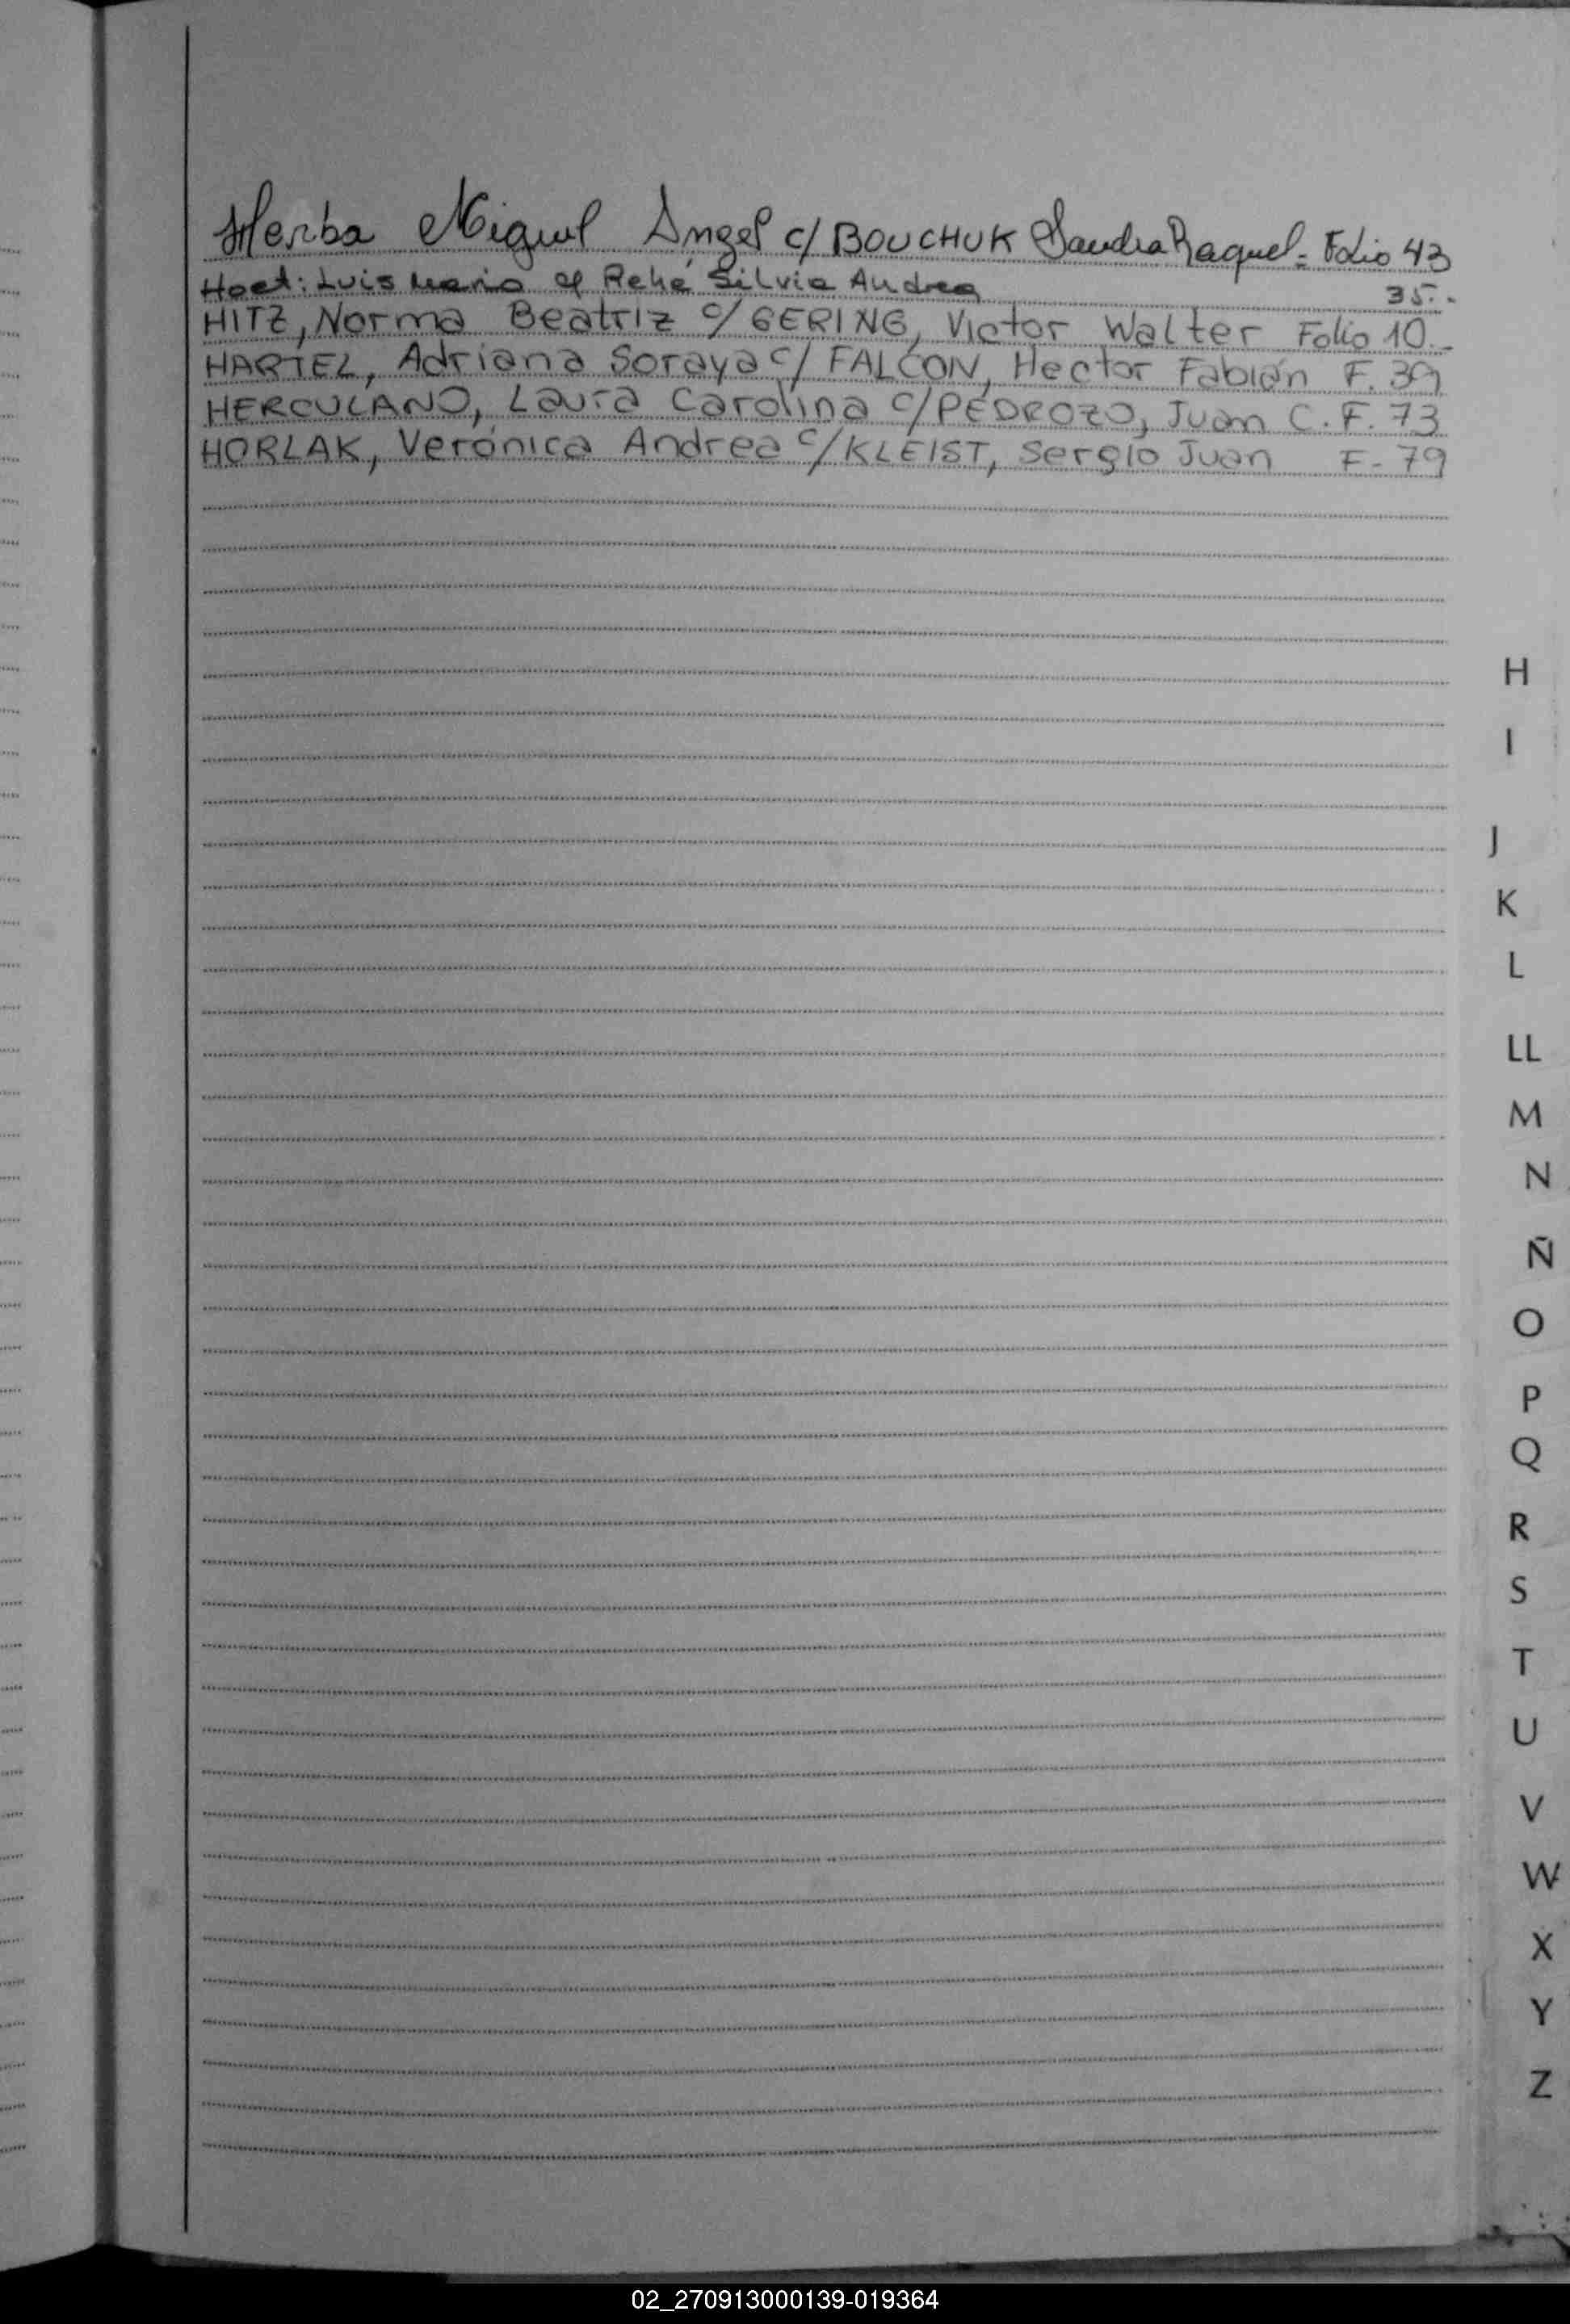 Herba Miguel Angel c/ BOUCHUK Sandra Raquel = Folio 43
Hoet: Luis Mario c/ Rehé Silvia Andrea 35..
HITZ, Norma Beatriz c/ GERING, Victor Walter Folio 10.-
HARTEL, Adriana Soraya c/ FALCON, Hector Fabián F. 39
HERCULANO, Laura Carolina c/ PEDROZO, Juan C. F. 73
HORLAK, Verónica Andrea c/ KLEIST, Sergio Juan F- 79
H
I
J
K
L
LL
M
N
Ñ
O
P
Q
R
S
T
U
V
W
X
Y
Z
02_270913000139-019364